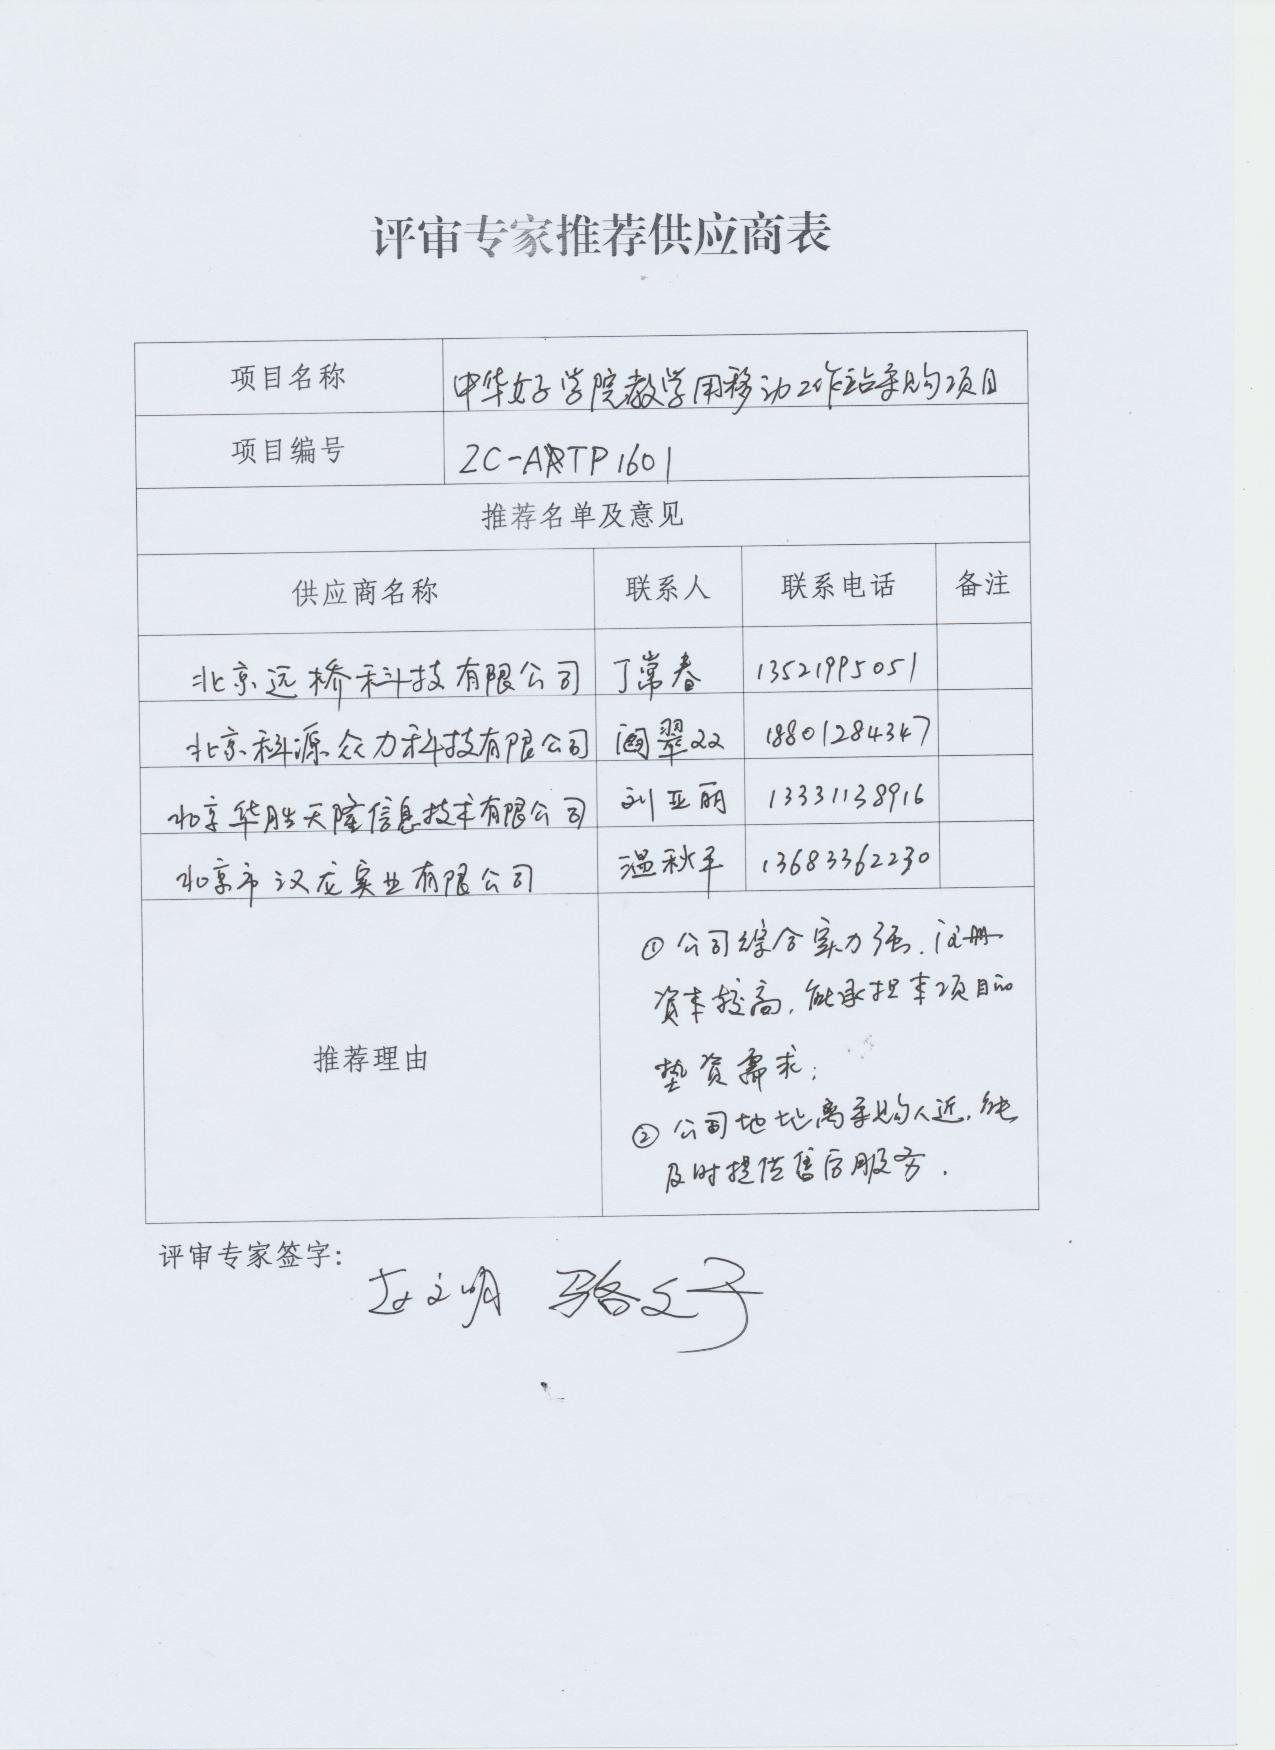 评审专家推荐供应商表
项目名称 中华女子学院教学用移动工作站采购项目
项目编号 ZC-ARTP1601
推荐名单及意见
供应商名称 联系人 联系电话 备注
北京远桥科技有限公司 丁常春 13521995051
北京科源众力科技有限公司 翠双 18801284347
北京华胜天隆信息技术有限公司 刘亚丽 13331138916
北京市汉龙实业有限公司 温秋平 13683362230
推荐理由
①公司综合实力强,注册
资本较高,能承担本项目的
垫资需求;
②公司地址离采购人近,能
及时提供售后服务.
评审专家签字:
文明 骆文子